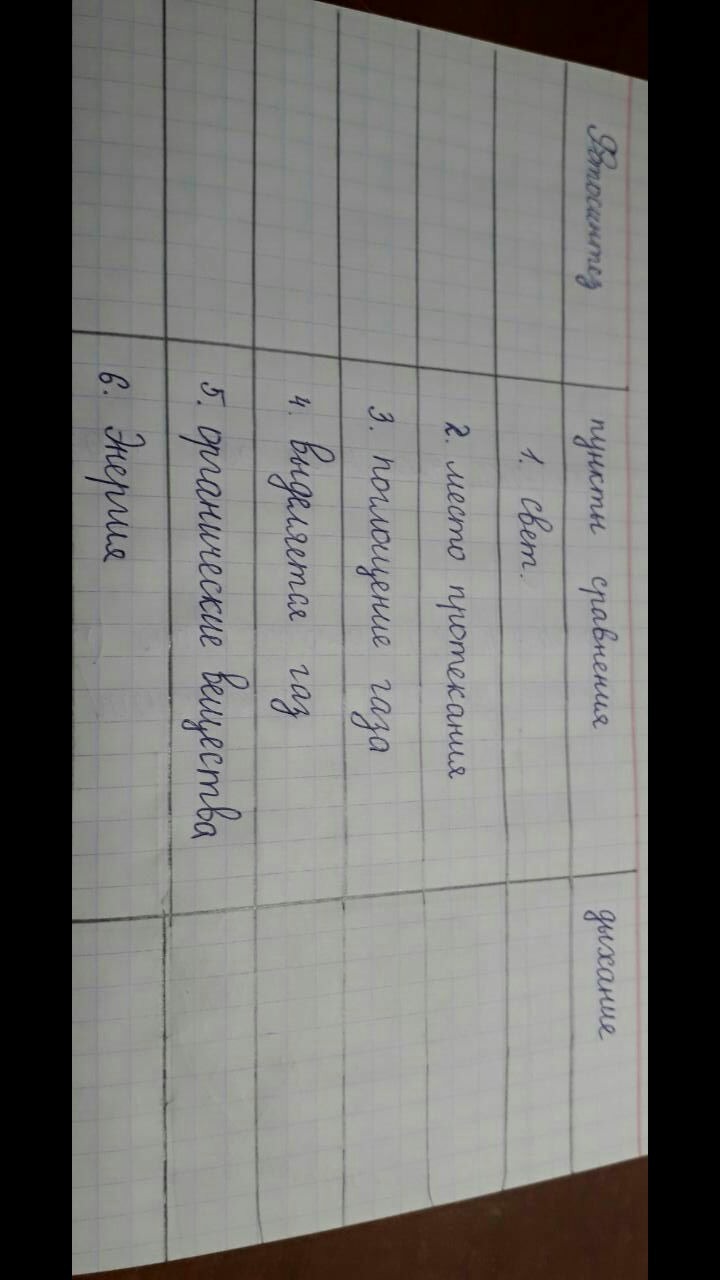 Фотосинтез пункты сравнения дыхание
1. свет.
2. место протекания
3. поглощение газа
4. выделяется газ
5. органические вещества
6. Энергия